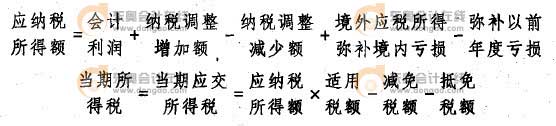 应纳税 会计 纳税调整 纳税调整 境外应税所得 弥补以前
= + - + -
所得额 利润 增加额 减少额 弥补境内亏损 年度亏损
当期所 当期应交 应纳税 适用 减免 抵免
= = × - -
得税 所得税 所得额 税额 税额 税额